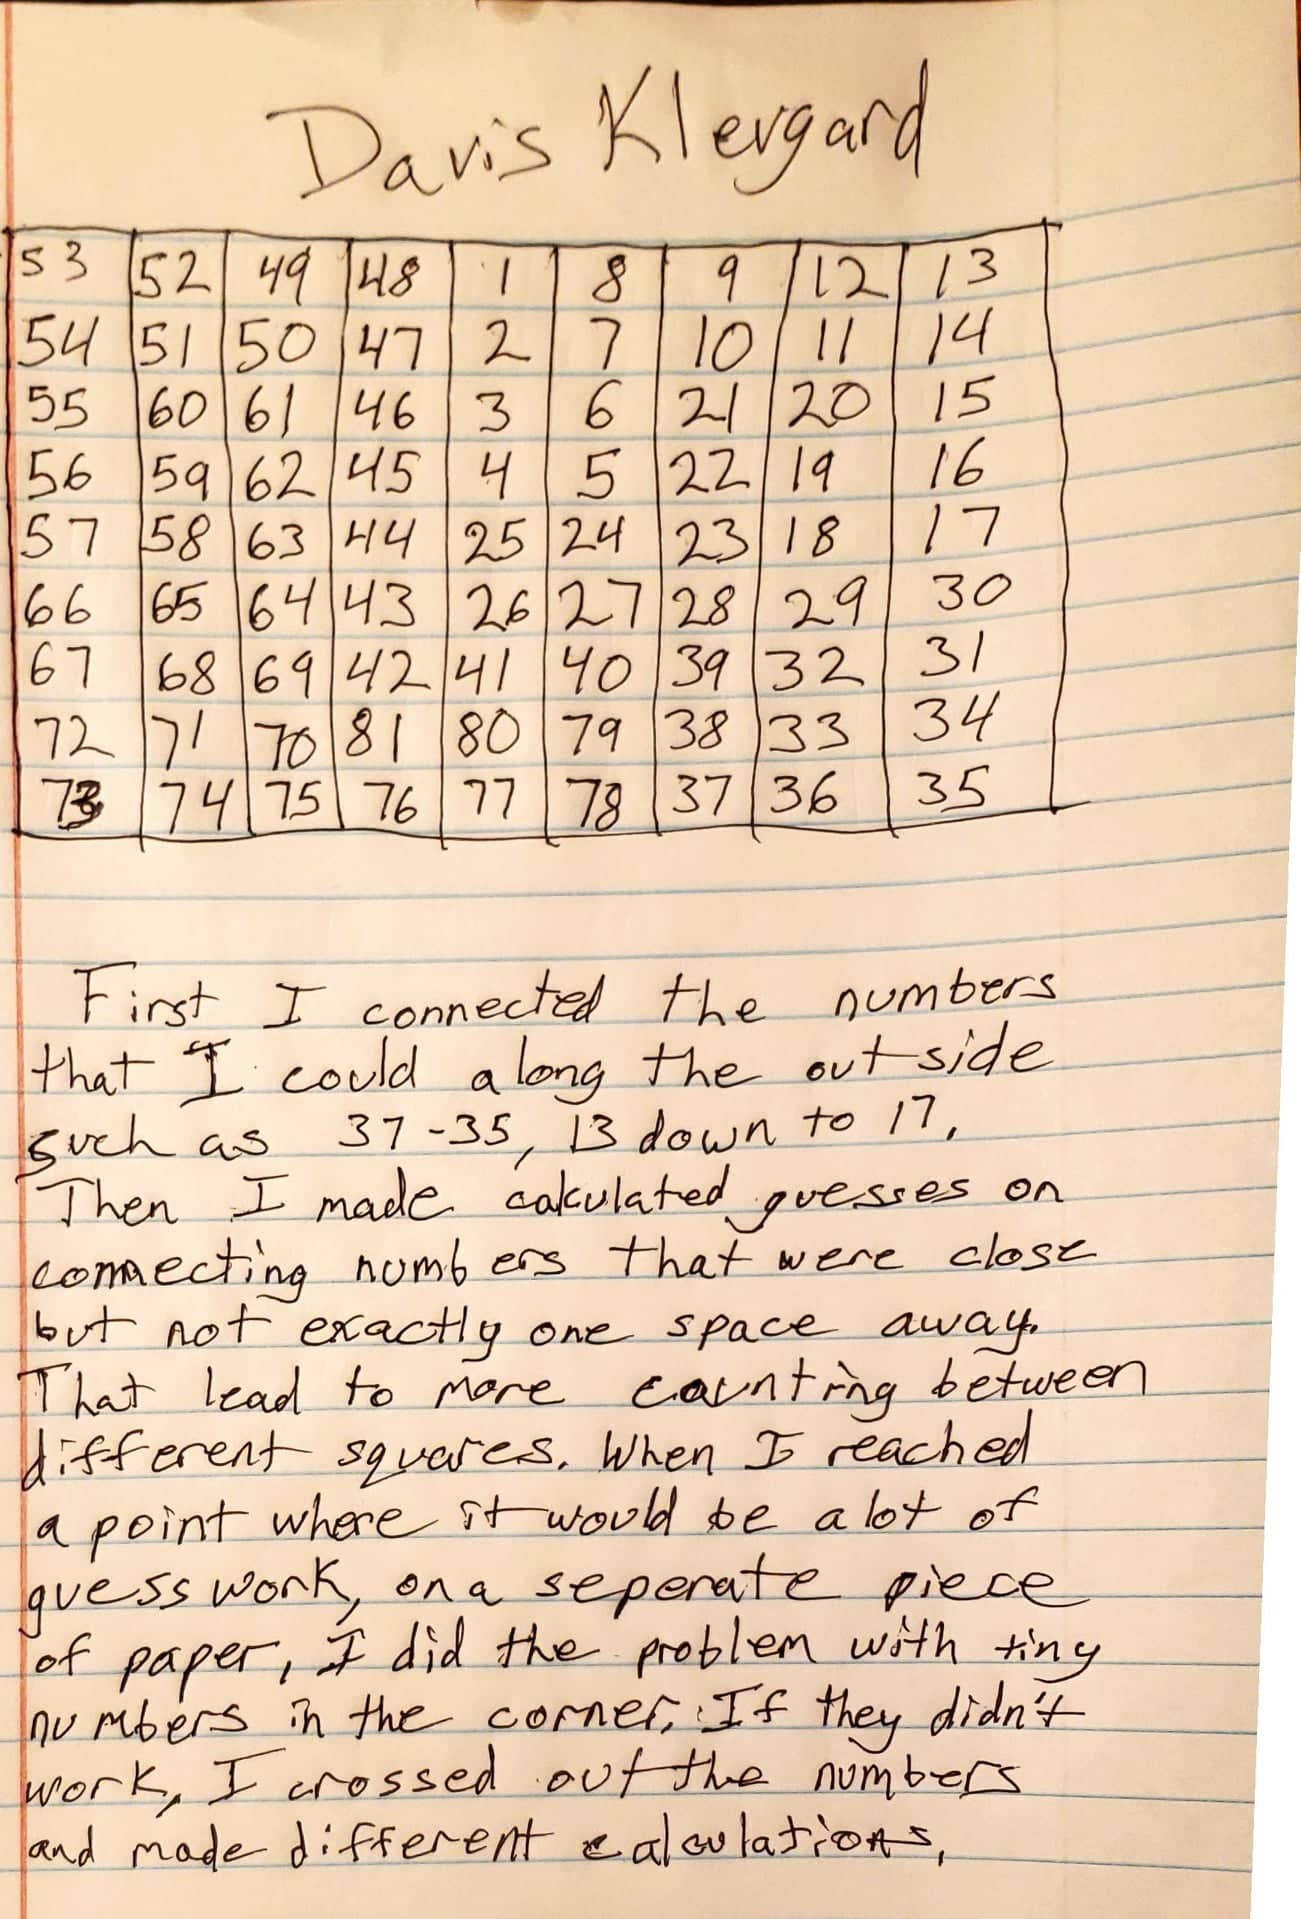 Davis Klevgard
53 52 49 48 1 8 9 12 13
54 51 50 47 2 7 10 11 14
55 60 61 46 3 6 21 20 15
56 59 62 45 4 5 22 19 16
57 58 63 44 25 24 23 18 17
66 65 64 43 26 27 28 29 30
67 68 69 42 41 40 39 32 31
72 71 70 81 80 79 38 33 34
73 74 75 76 77 78 37 36 35
First I connected the numbers
that I could along the outside
such as 37-35, 13 down to 17.
Then I made calculated guesses on
connecting numbers that were close
but not exactly one space away.
That lead to more counting between
different squares. When I reached
a point where it would be a lot of
guess work, on a seperate piece
of paper, I did the problem with tiny
numbers in the corner. If they didn't
work, I crossed out the numbers
and made different calculations.